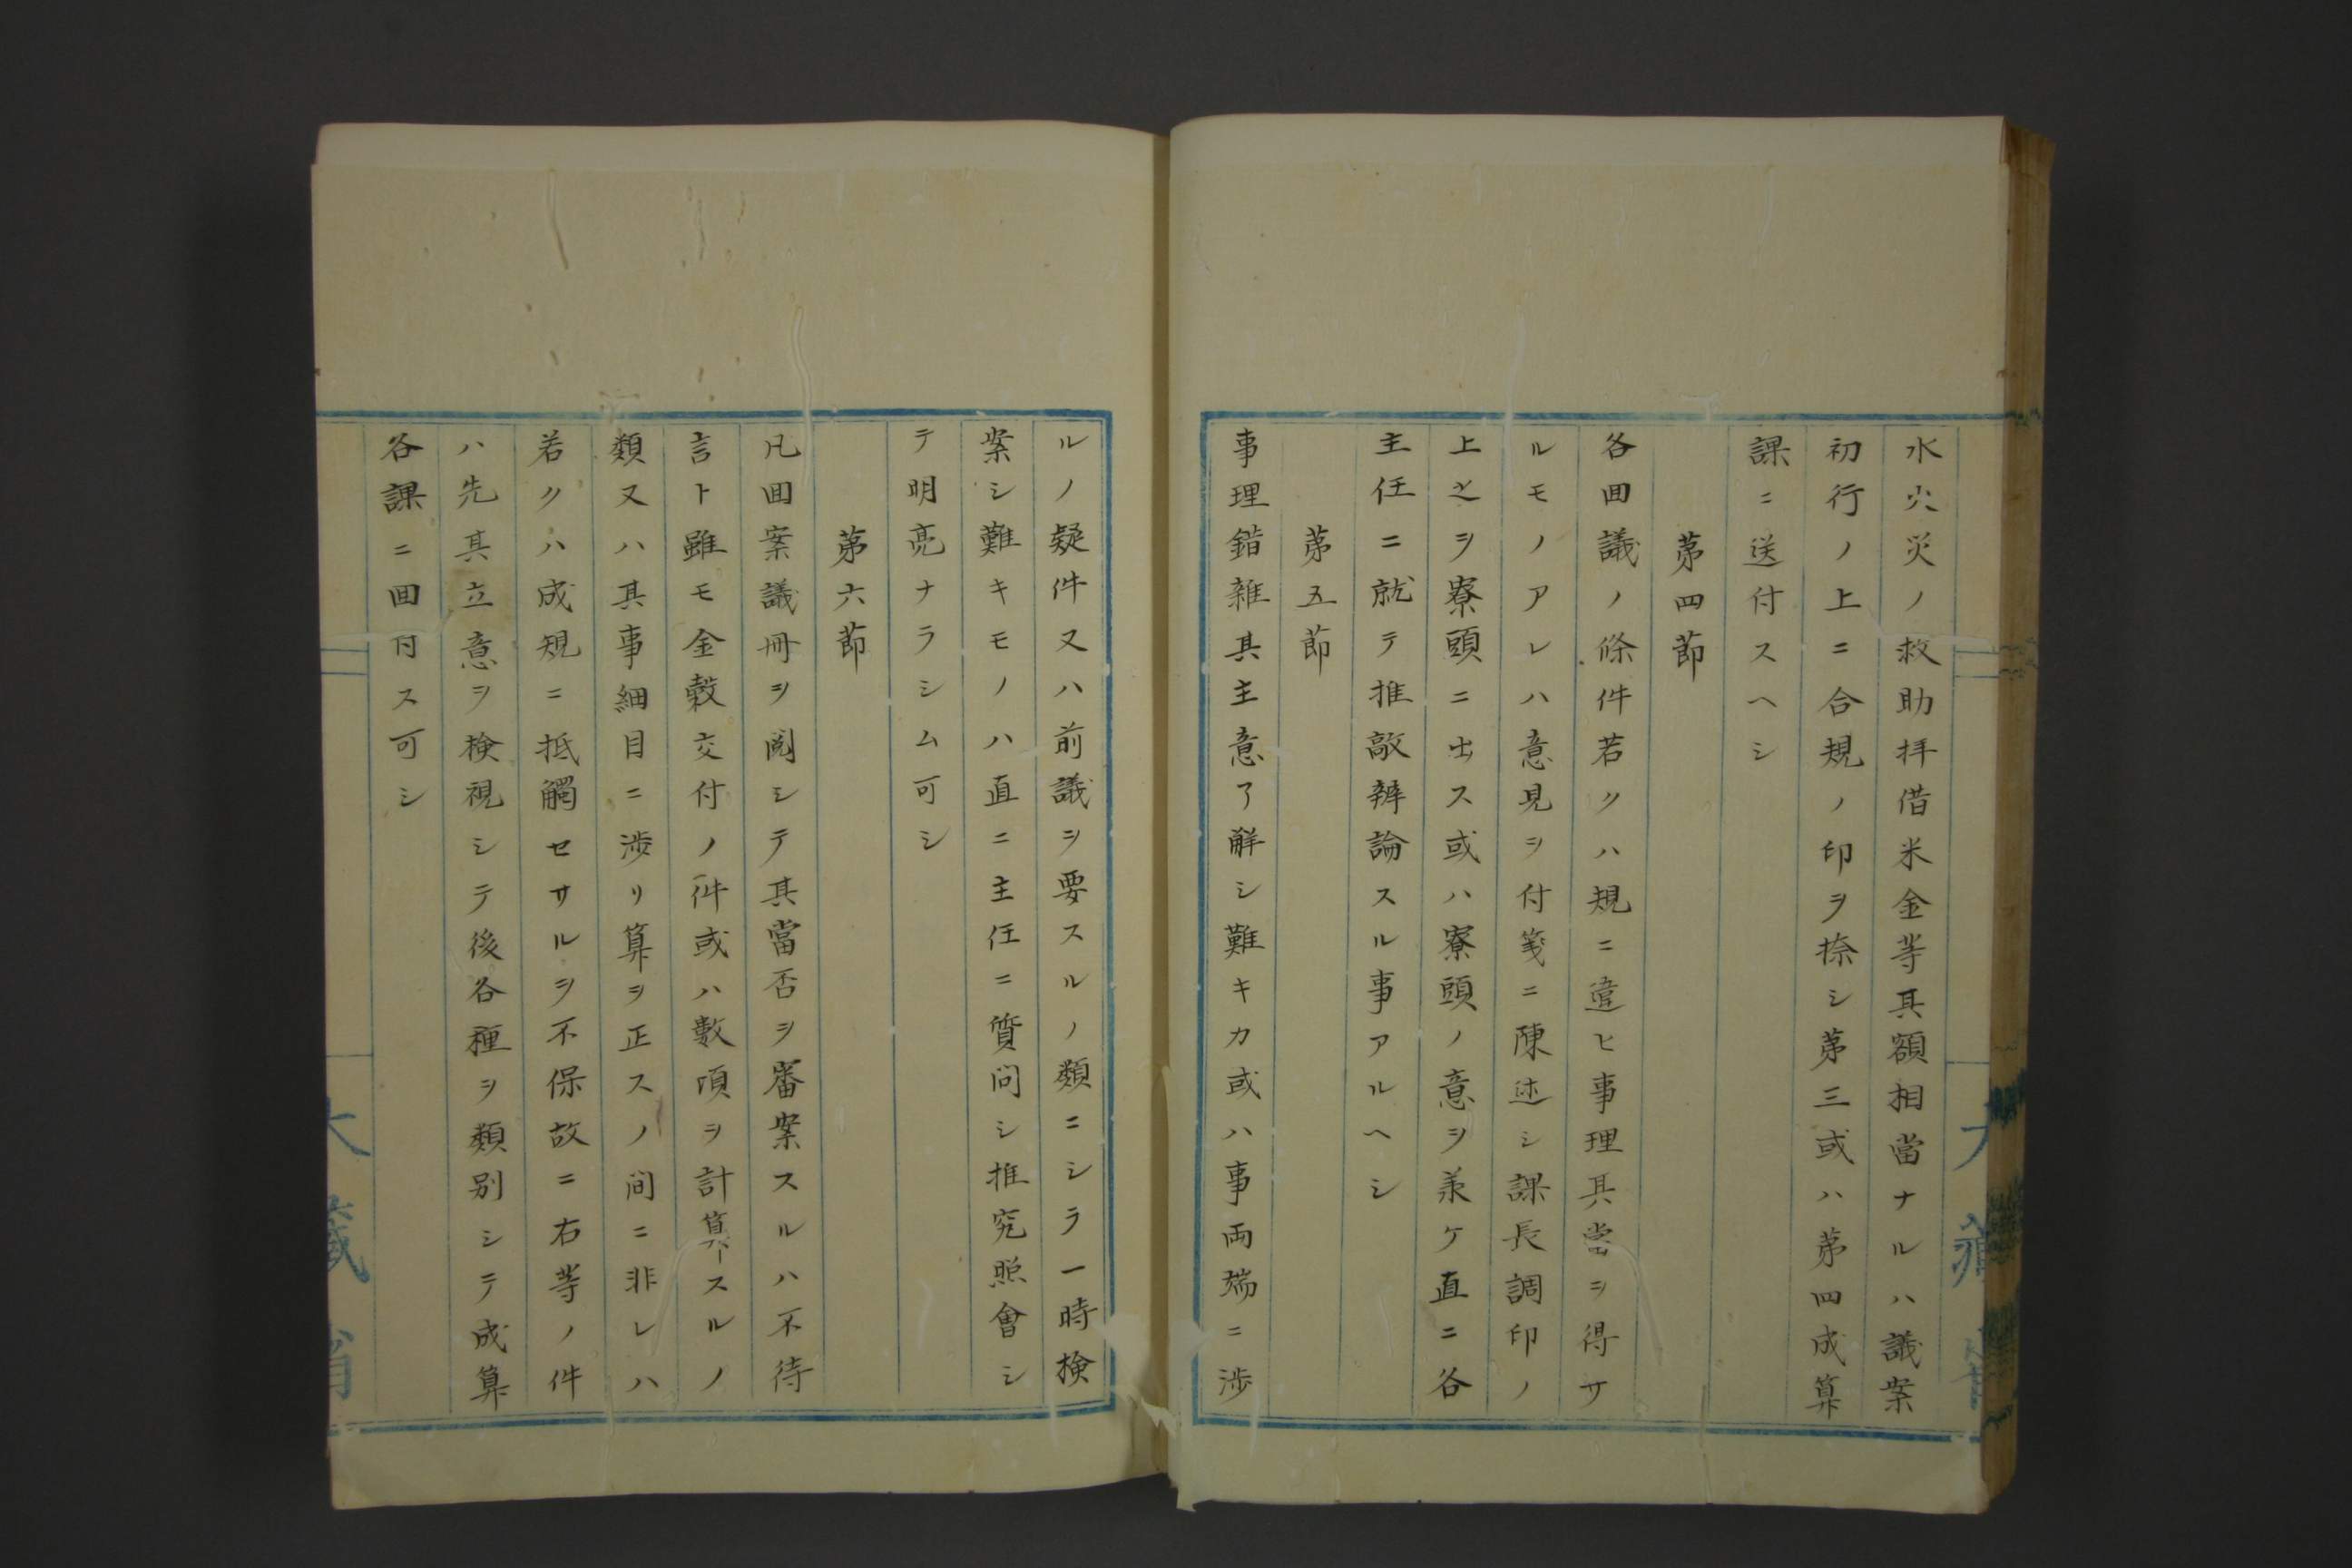 水火災ノ救助拝借米金等其額相當ナルハ議案
初行ノ上ニ合規ノ印ヲ捺シ第三或ハ第四成算
課ニ送付スヘシ
第四節
各囬議ノ條件若クハ規ニ違ヒ事理其當ヲ得サ
ルモノアレハ意見ヲ付箋ニ陳述シ課長調印ノ
上之ヲ寮頭ニ出ス或ハ寮頭ノ意ヲ承ケ直ニ各
主任ニ就テ推敲辨論スル事アルヘシ
第五節
事理錯雜其主意了解シ難キカ或ハ事両端ニ渉
ルノ疑件又ハ前議ヲ要スルノ類ニシラ一時検
案シ難キモノハ直ニ主任ニ質问シ推究照會シ
テ明亮ナラシム可シ
第六節
凡囬案議冊ヲ閲シテ其當否ヲ審案スルハ不待
言ト雖モ金穀交付ノ件或ハ數項ヲ計算スルノ
類又ハ其事細目ニ渉リ算ヲ正スノ间ニ非レハ
若クハ成規ニ抵觸セサルヲ不保故ニ右等ノ件
ハ先其立意ヲ検視シテ後各種ヲ類別シテ成算
各課ニ囬付ス可シ
大藏省